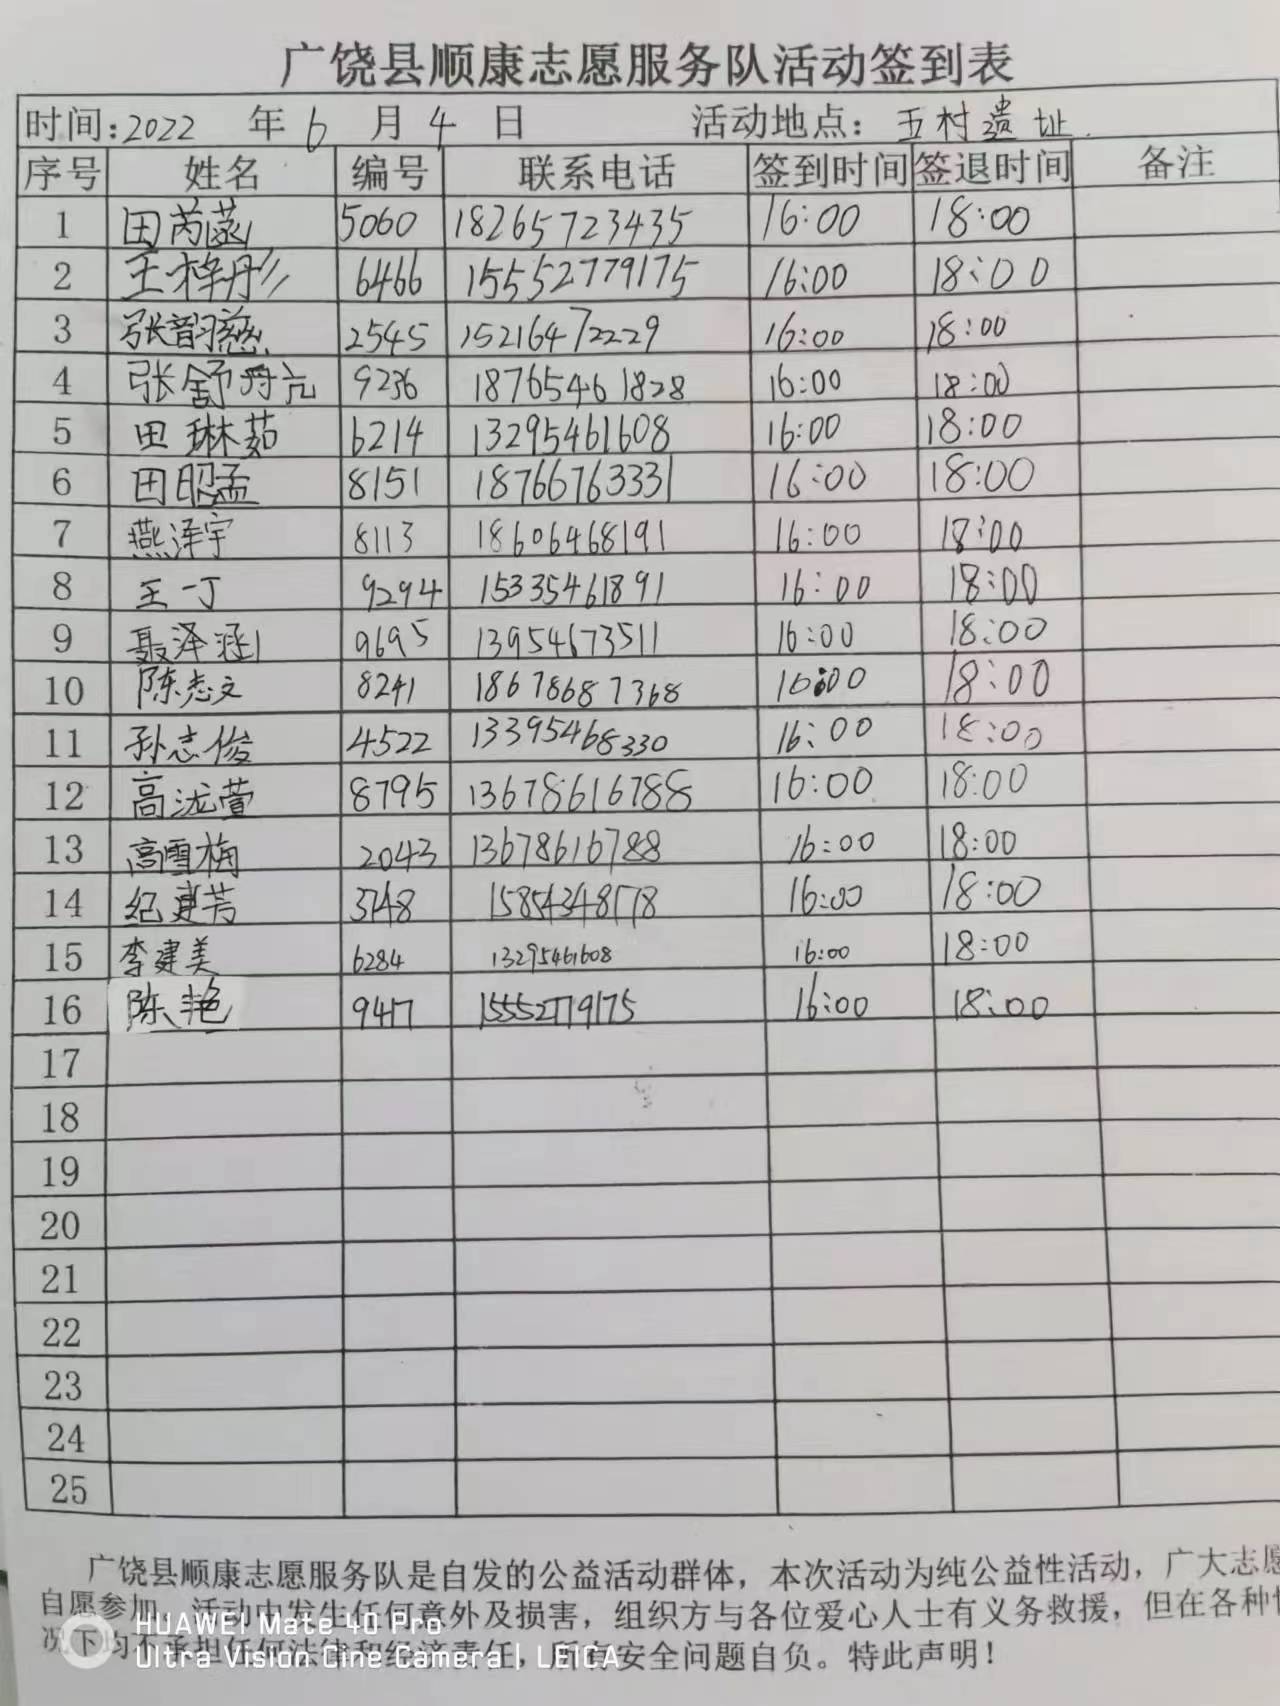 广饶县顺康志愿服务队活动签到表
时间:2022 年 6 月 4 日 活动地点: 五村遗址
序号 姓名 编号 联系电话 签到时间 签退时间 备注
1 田芮菡 5060 18265723435 16:00 18:00
2 王梓彤 6466 15552779175 16:00 18:00
3 张韵慈 2545 15216472229 16:00 18:00
4 张舒 9236 18765461828 16:00 18:00
5 田琳茹 6214 13295461608 16:00 18:00
6 田昭孟 8151 18766763331 16:00 18:00
7 燕泽宇 8113 18606468191 16:00 18:00
8 王一丁 9294 15335461891 16:00 18:00
9 聂泽涵 9695 13954673511 16:00 18:00
10 陈志文 8241 18678687368 16:00 18:00
11 孙志俊 4522 13395468330 16:00 18:00
12 高泷萱 8795 13678616788 16:00 18:00
13 高雪梅 2043 13678616788 16:00 18:00
14 纪建芳 3748 15854348178 16:00 18:00
15 李建美 6284 13295461608 16:00 18:00
16 陈艳 9417 15552779175 16:00 18:00
17
18
19
20
21
22
23
24
25
广饶县顺康志愿服务队是自发的公益活动群体，本次活动为纯公益性活动，广大志愿
自愿参加，活动中发生任何意外及损害，组织方与各位爱心人士有义务救援，但在各种情
况下均不承担任何法律和经济责任，所有安全问题自负。特此声明！
HUAWEI Mate 40 Pro
Ultra Vision Cine Camera | LEICA